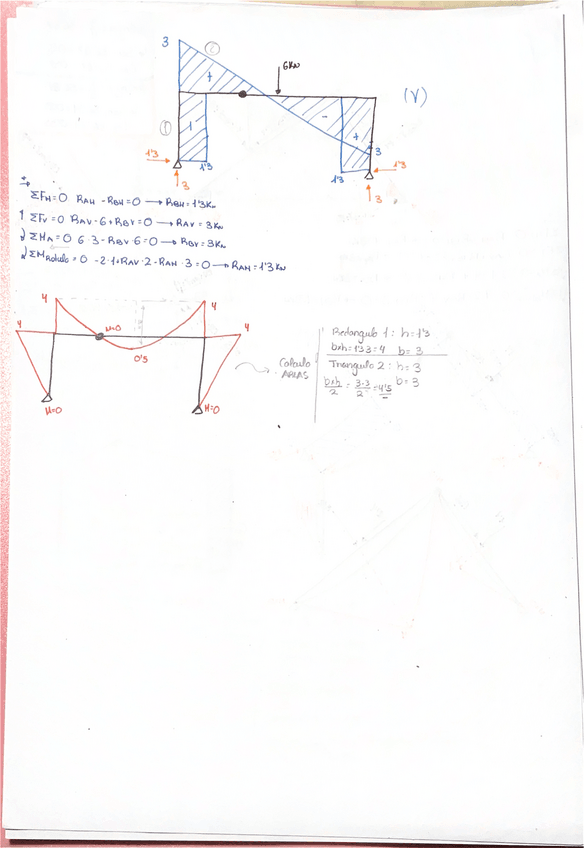 3
②
6 KN
(V)
+
-
①
1
+
3
1'3
1'3
1'3
1'3
3
3
ΣFH=0 RAH - RBH=0 → RBH=1'3KN
ΣFV=0 RAV-6+RBV=0 → RAV=3KN
ΣMA=0 6·3-RBV·6=0 → RBV=3KN
ΣMRotulo=0 -2·1+RAV·2-RAH·3=0 → RAH=1'3KN
4
4
4
M=0
4
0'5
M=0
M=0
Calculo
AREAS
Rectangulo 1: h=1'3
bxh=1'3·3=4 b=3
Triangulo 2: h=3
bxh/2=3·3/2=4'5 b=3